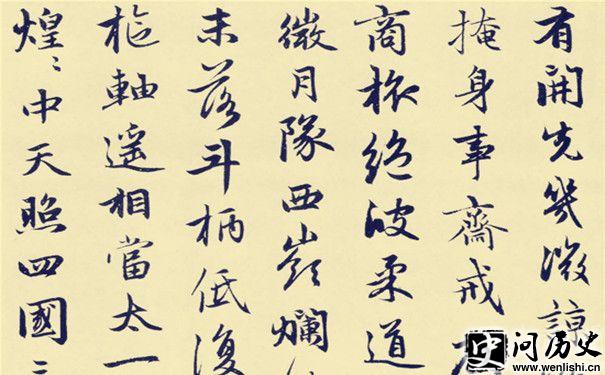 有開先幾微諒
掩身事齋戒
商旅絕彼柔道
微月隊西嶺爛
未落斗柄低復
樞軸遥相當太一
煌〻中天照四國
史 问历史
www.wenlishi.cn